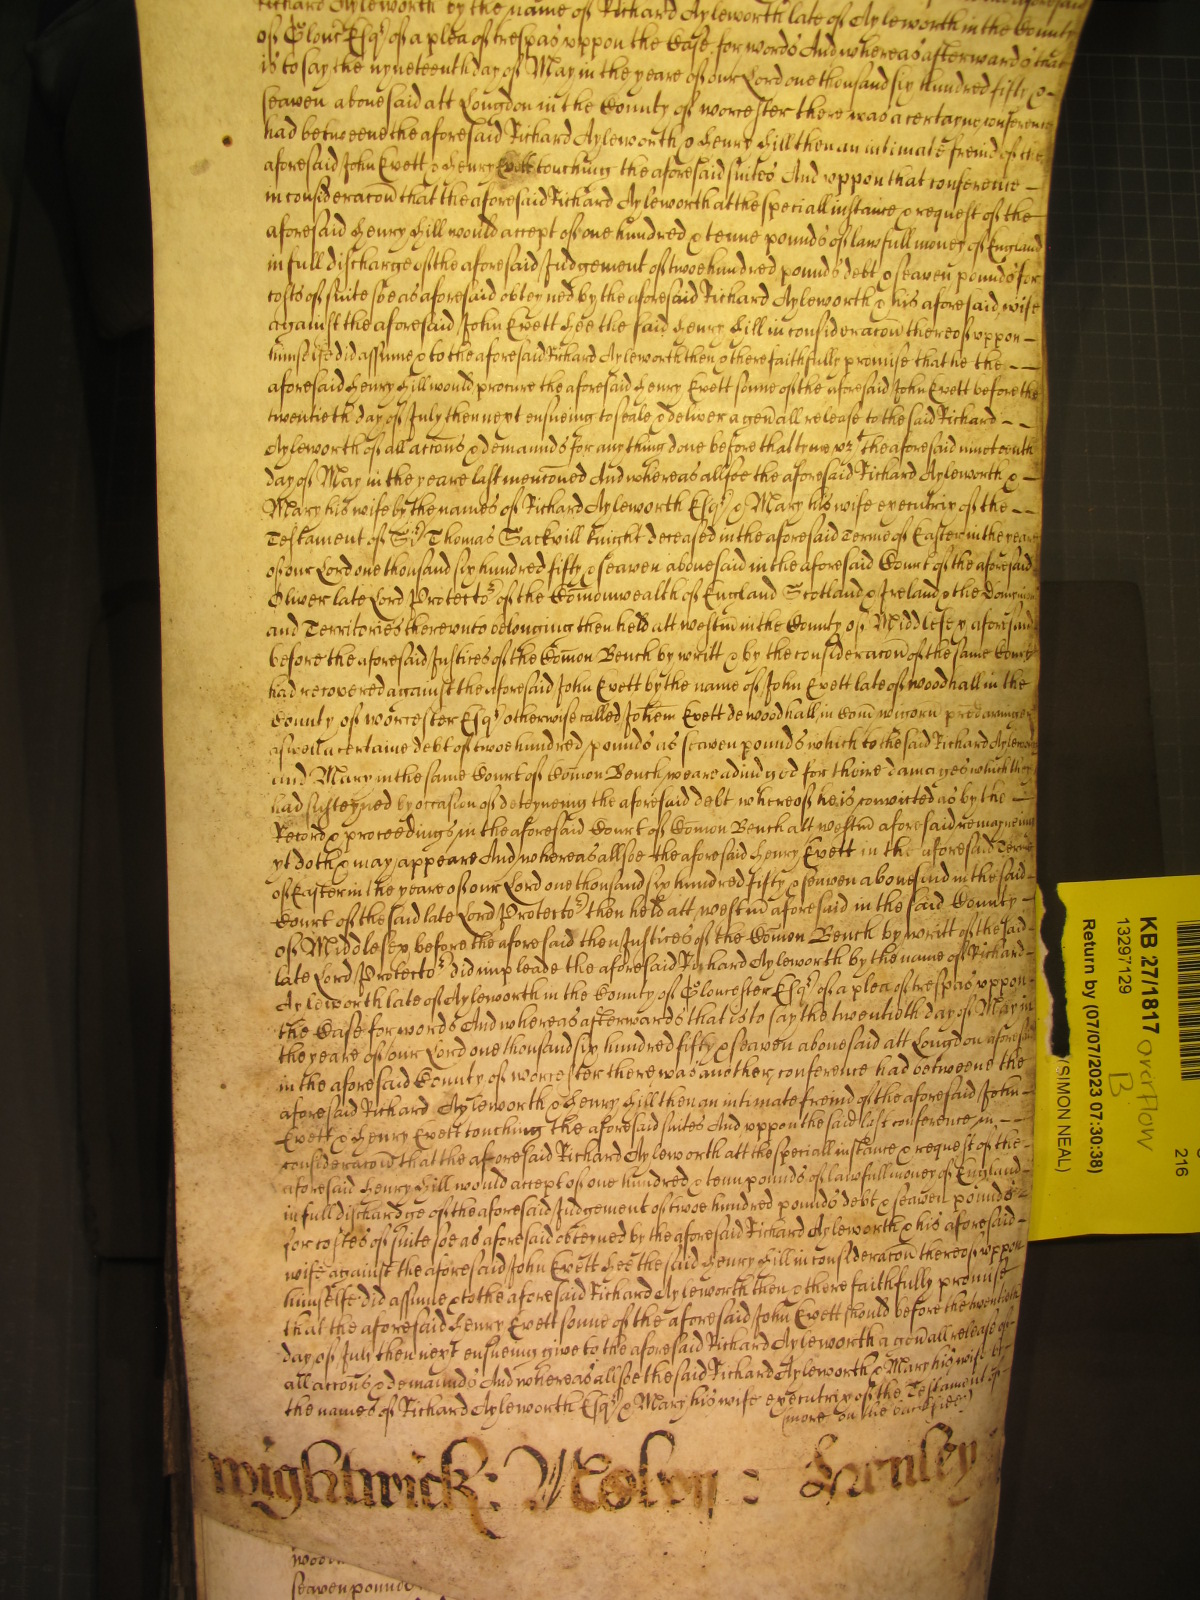 Richard Ayleworth by the name of Richard Ayleworth late of Ayleworth in the County
of Glouc Esqr of a plea of trespas uppon the Case for words And whereas afterwards that
is to say the nyneteenth day of May in the yeare of our Lord one thousand six hundred fifty &
seaven abovesaid att Longdon in the County of worcester there was a certayne conference
had betweene the aforesaid Richard Ayleworth & Henry Hill then an intimate freind of the
aforesaid John Evett & Henry Evett touching the aforesaid suites And uppon that conference
in consideracon that the aforesaid Richard Ayleworth at the speciall instance & request of the
aforesaid Henry Hill would accept of one hundred & tenne pounds of lawfull money of England
in full discharge of the aforesaid Judgement of twoe hundred pounds debt & seaven pounds for
costs of suite soe as aforesaid obteyned by the aforesaid Richard Ayleworth & his aforesaid wife
against the aforesaid John Evett hee the said Henry Hill in consideracon thereof uppon
himselfe did assume & to the aforesaid Richard Ayleworth then & there faithfully promise that he the
aforesaid Henry Hill would procure the aforesaid Henry Evett sonne of the aforesaid John Evett before the
twentieth day of July then next ensueing to seale & deliver a genall release to the said Richard
Ayleworth of all accons & demaunds for any thing done before that tyme vizt the aforesaid nineteenth
day of May in the yeare last menconed And whereas allsoe the aforesaid Richard Ayleworth &
Mary his wife by the names of Richard Ayleworth Esqr & Mary his wife executrix of the
Testament of Sr Thomas Sackvill knight deceased in the aforesaid Terme of Easter in the yeare
of our Lord one thousand six hundred fifty & seaven abovesaid in the aforesaid Court of the aforesaid
Oliver late Lord Protector of the Comonwealth of England Scotland & Ireland & the Dominions
and Territories thereunto belonging then held att westm in the County of Middlesex aforesaid
before the aforesaid Justices of the Comon Bench by writt & by the consideracon of the same Court
had recovered against the aforesaid John Evett by the name of John Evett late of woodhall in the
County of worcester Esqr otherwise called Johem Evett de woodhall in Com wigorn
as well a certaine debt of twoe hundred pounds as seaven pounds which to the said Richard Ayleworth
and Mary in the same Court of Comon Bench weare adiudged for theire damages which they
had susteyned by occasion of deteyneing the aforesaid debt whereof he is convicted as by the
Record & proceedings in the aforesaid Court of Comon Bench att westm aforesaid remayneing
yt doth & may appeare And whereas allsoe the aforesaid Henry Evett in the aforesaid Terme
of Easter in the yeare of our Lord one thousand six hundred fifty & seaven abovesaid in the said
Court of the said late Lord Protector then held att westm aforesaid in the said County
of Middlesex before the aforesaid then Justices of the Comon Bench by writt of the said
late Lord Protector did impleade the aforesaid Richard Ayleworth by the name of Richard
Ayleworth late of Ayleworth in the County of Gloucester Esqr of a plea of trespas uppon
the Case for words And whereas afterwards that is to say the twentieth day of May in
the yeare of our Lord one thousand six hundred fifty & seaven abovesaid att Longdon aforesaid
in the aforesaid County of worcester there was another conference had betweene the
aforesaid Richard Ayleworth & Henry Hill then an intimate freind of the aforesaid John
Evett & Henry Evett touching the aforesaid suites And uppon the said last conference in
consideracon that the aforesaid Richard Ayleworth att the speciall instance & request of the
aforesaid Henry Hill would accept of one hundred & tenn pounds of lawfull money of England
in full dischardge of the aforesaid Judgement of twoe hundred pounds debt & seaven pounds
for costes of suite soe as aforesaid obteyned by the aforesaid Richard Ayleworth & his aforesaid
wife against the aforesaid John Evett hee the said Henry Hill in consideracon thereof uppon
himselfe did assume & to the aforesaid Richard Ayleworth then & there faithfully promise
that the aforesaid Henry Evett sonne of the aforesaid John Evett should before the twentieth
day of July then next ensueing give to the aforesaid Richard Ayleworth a genall release of
all accons & demaunds And whereas allsoe the said Richard Ayleworth & Mary his wife by
the names of Richard Ayleworth Esqr & Mary his wife executrix of the Testament of
(more on the backside)
wightwick: Henley
seaven pounds
KB 27/1817 overflow
B
13297129
216
Return by (07/07/2023 07:30:38)
(SIMON NEAL)